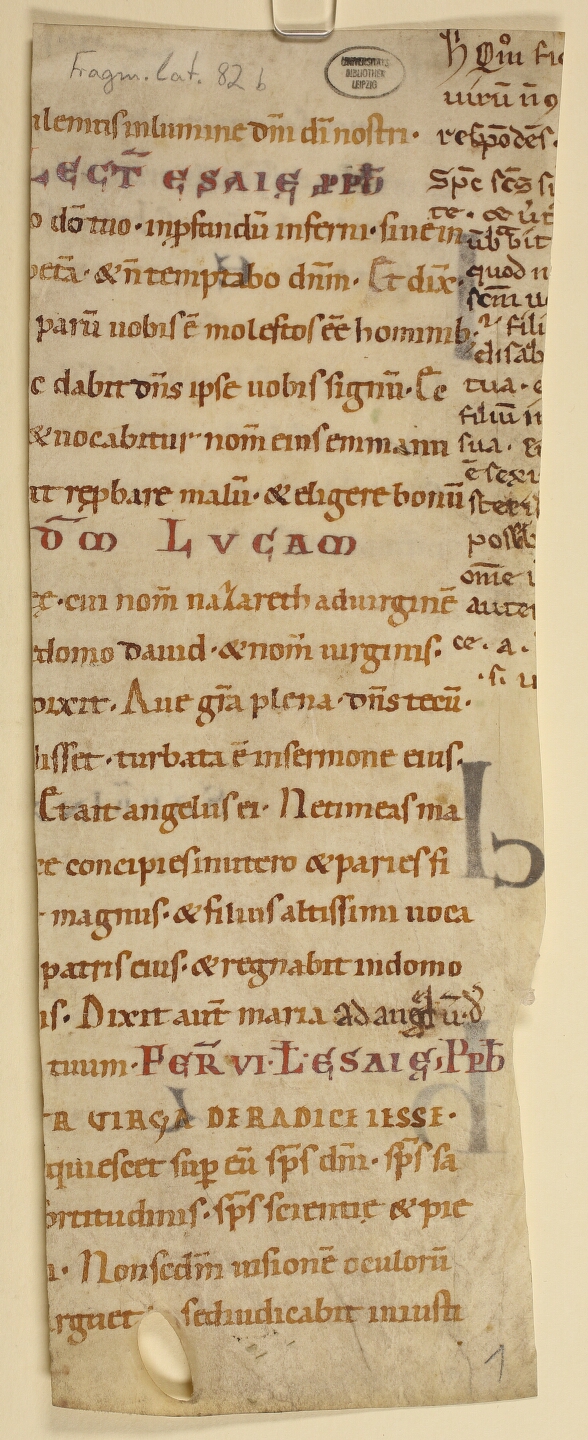 Fragm. lat. 82 b
UNIVERSITÄTS
BIBLIOTHEK
LEIPZIG
ulemus in lumine dñi di nostri·
LECT̄ ESAIE ꝓph̄
o dō tuo· inp̄fundū inferni· siue in
petā· & ñ temptabo dñm· Et dix̄·
parū uobis ē molestos eē hominib;
c dabit dñs ipse uobis signū· Ec
& uocabitur nom̄ eius emmanu
at rep̱bare malū· & eligere bonū
d̄m LVCAM
ę· cui nom̄ nazareth aduirginē
domo dauid· & nom̄ uirginis·
dixit· Aue gr̄a plena· dñs tecū·
disset· turbata ē in sermone eius·
Et ait angelus ei· Ne timeas ma
ce concipies inutero & paries fi
magnus· & filius altissimi uoca
patris eius· & regnabit in domo
is· Dixit aut̄ maria ad angl̄ū·
tuum· FER̄ VI· L̄· ESAIĘ· Pph̄
R VIRGA DE RADICE IESSE·
quiescet sup̱ eū sp̄s dñi· sp̄s sa
ortitudinis· sp̄s scientię & pie
i· Non scdm̄ uisionē oculorū
rguet sed iudicabit in iusti
uirū ñ
respōdēs·
Sp̄c sc̄s
quod
scm̄
tua·
filiū
sua·
aute
1